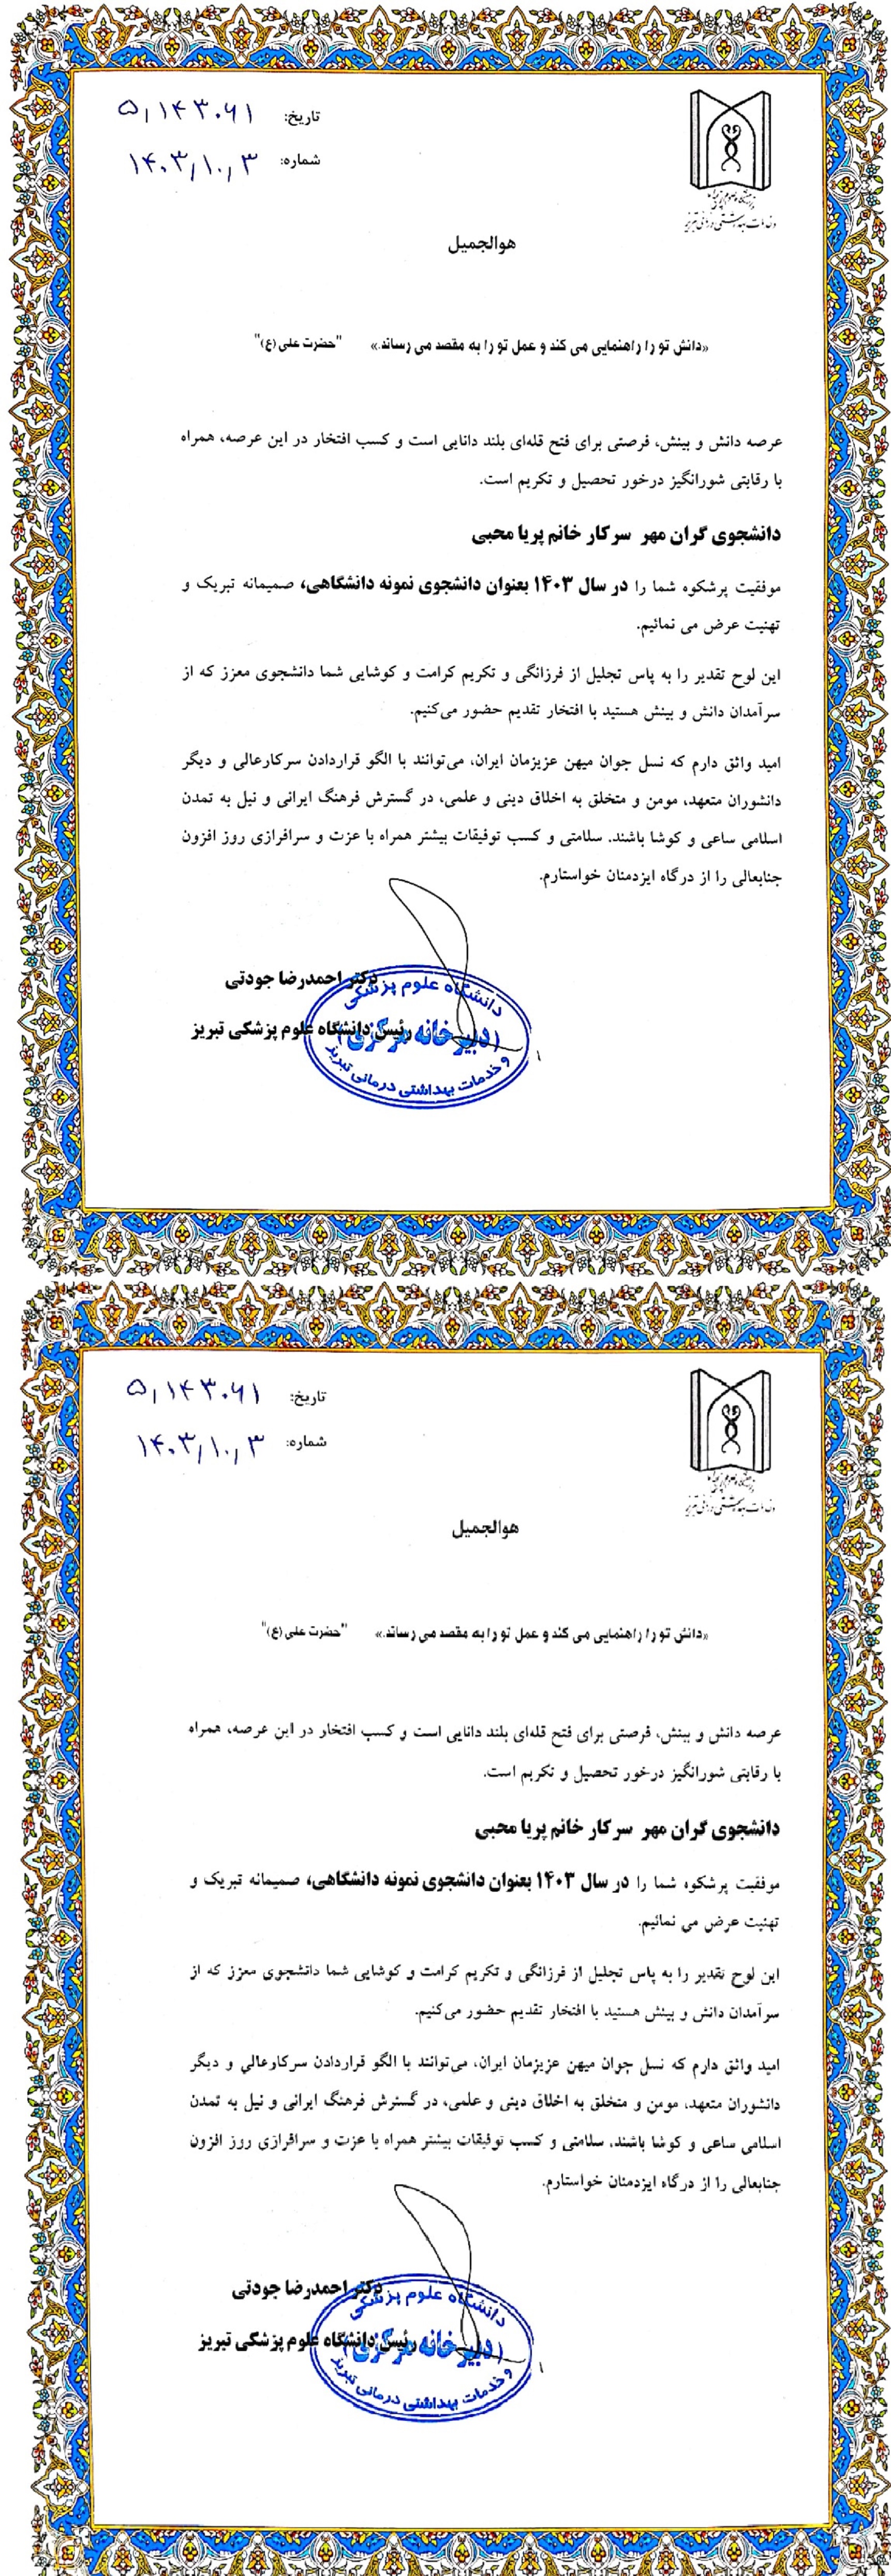 تاریخ: ۵/۱۴۳۰۶۱
شماره: ۱۴۰۳/۱۰/۳
دانشگاه علوم پزشکی
و خدمات بهداشتی درمانی تبریز
هوالجمیل
«دانش تو را راهنمایی می کند و عمل تو را به مقصد می رساند.» "حضرت علی (ع)"
عرصه دانش و بینش، فرصتی برای فتح قله‌ای بلند دانایی است و کسب افتخار در این عرصه، همراه
با رقابتی شورانگیز درخور تحصیل و تکریم است.
دانشجوی گران مهر سرکار خانم پریا محبی
موفقیت پرشکوه شما را در سال ۱۴۰۳ بعنوان دانشجوی نمونه دانشگاهی، صمیمانه تبریک و
تهنیت عرض می نمائیم.
این لوح تقدیر را به پاس تجلیل از فرزانگی و تکریم کرامت و کوشایی شما دانشجوی معزز که از
سرآمدان دانش و بینش هستید با افتخار تقدیم حضور می‌کنیم.
امید واثق دارم که نسل جوان میهن عزیزمان ایران، می‌توانند با الگو قراردادن سرکارعالی و دیگر
دانشوران متعهد، مومن و متخلق به اخلاق دینی و علمی، در گسترش فرهنگ ایرانی و نیل به تمدن
اسلامی ساعی و کوشا باشند. سلامتی و کسب توفیقات بیشتر همراه با عزت و سرافرازی روز افزون
جنابعالی را از درگاه ایزدمنان خواستارم.
دکتر احمدرضا جودتی
رئیس دانشگاه علوم پزشکی تبریز
دانشگاه علوم پزشکی
(دبیرخانه مرکزی)
و خدمات بهداشتی درمانی تبریز
تاریخ: ۵/۱۴۳۰۶۱
شماره: ۱۴۰۳/۱۰/۳
دانشگاه علوم پزشکی
و خدمات بهداشتی درمانی تبریز
هوالجمیل
«دانش تو را راهنمایی می کند و عمل تو را به مقصد می رساند.» "حضرت علی (ع)"
عرصه دانش و بینش، فرصتی برای فتح قله‌ای بلند دانایی است و کسب افتخار در این عرصه، همراه
با رقابتی شورانگیز درخور تحصیل و تکریم است.
دانشجوی گران مهر سرکار خانم پریا محبی
موفقیت پرشکوه شما را در سال ۱۴۰۳ بعنوان دانشجوی نمونه دانشگاهی، صمیمانه تبریک و
تهنیت عرض می نمائیم.
این لوح تقدیر را به پاس تجلیل از فرزانگی و تکریم کرامت و کوشایی شما دانشجوی معزز که از
سرآمدان دانش و بینش هستید با افتخار تقدیم حضور می‌کنیم.
امید واثق دارم که نسل جوان میهن عزیزمان ایران، می‌توانند با الگو قراردادن سرکارعالی و دیگر
دانشوران متعهد، مومن و متخلق به اخلاق دینی و علمی، در گسترش فرهنگ ایرانی و نیل به تمدن
اسلامی ساعی و کوشا باشند. سلامتی و کسب توفیقات بیشتر همراه با عزت و سرافرازی روز افزون
جنابعالی را از درگاه ایزدمنان خواستارم.
دکتر احمدرضا جودتی
رئیس دانشگاه علوم پزشکی تبریز
دانشگاه علوم پزشکی
(دبیرخانه مرکزی)
و خدمات بهداشتی درمانی تبریز